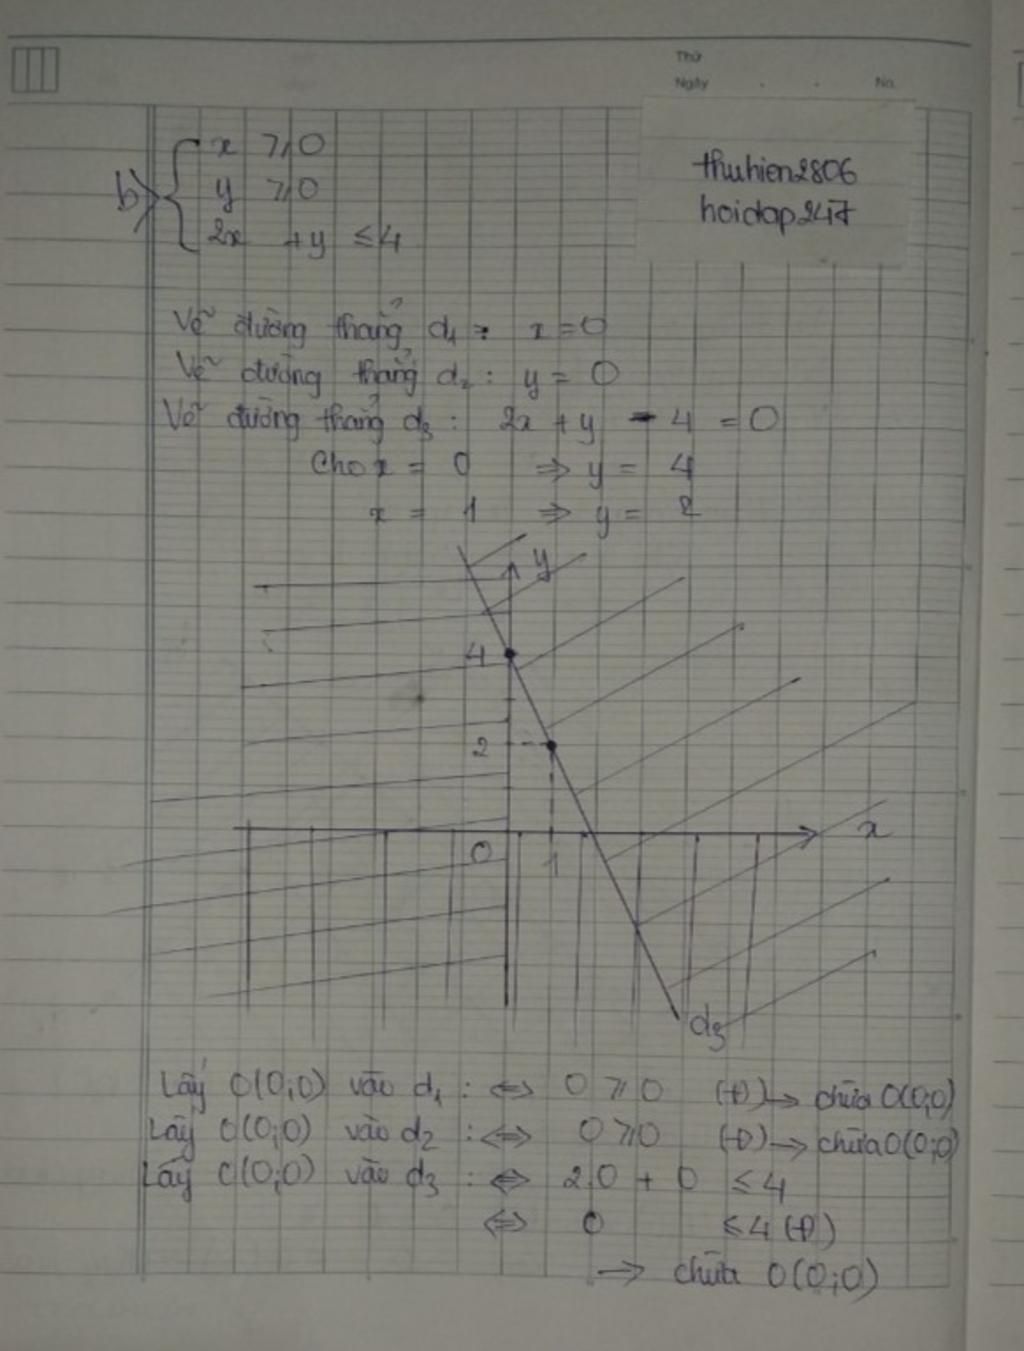 Thứ
Ngày . . No.
thuhien2806
hoidap247
b) { x ⩾ 0
y ⩾ 0
2x + y ≤ 4
Vẽ đường thẳng d₁ : x = 0
Vẽ đường thẳng d₂ : y = 0
Vẽ đường thẳng d₃ : 2x + y - 4 = 0
Cho x = 0 ⇒ y = 4
x = 1 ⇒ y = 2
y
4
2
0
1
x
d₃
Lấy O(0;0) vào d₁ : ⇔ 0 ⩾ 0 (Đ) → chứa O(0;0)
Lấy O(0;0) vào d₂ : ⇔ 0 ⩾ 0 (Đ) → chứa O(0;0)
Lấy O(0;0) vào d₃ : ⇔ 2.0 + 0 ≤ 4
⇔ 0 ≤ 4 (Đ)
→ chứa O(0;0)